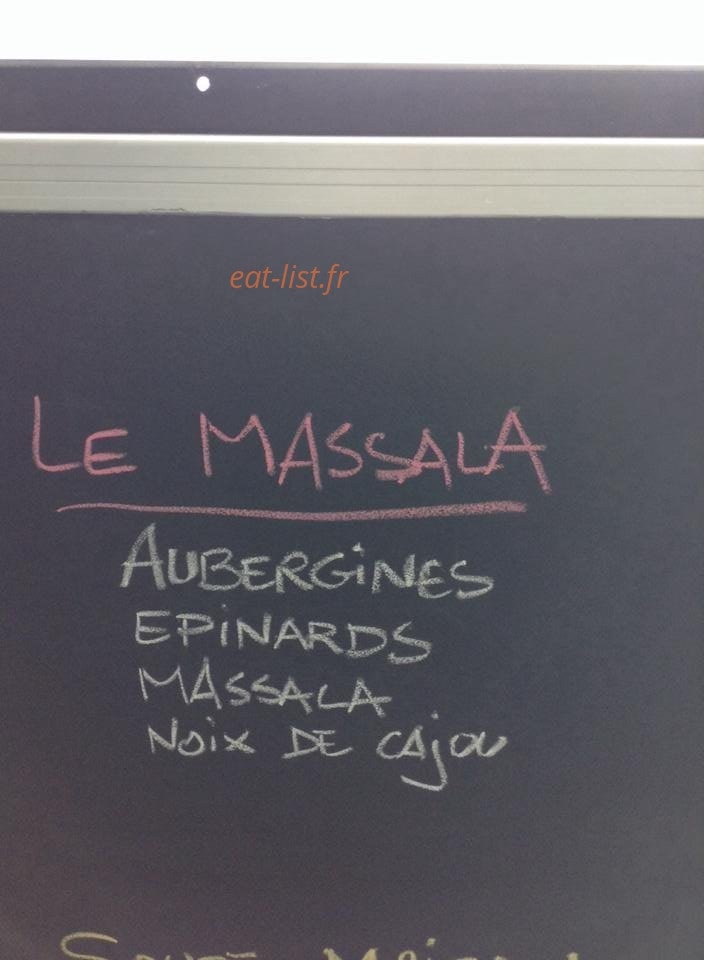 eat-list.fr
LE MASSALA
AUBERGINES
EPINARDS
MASSALA
NOIX DE CAJOU